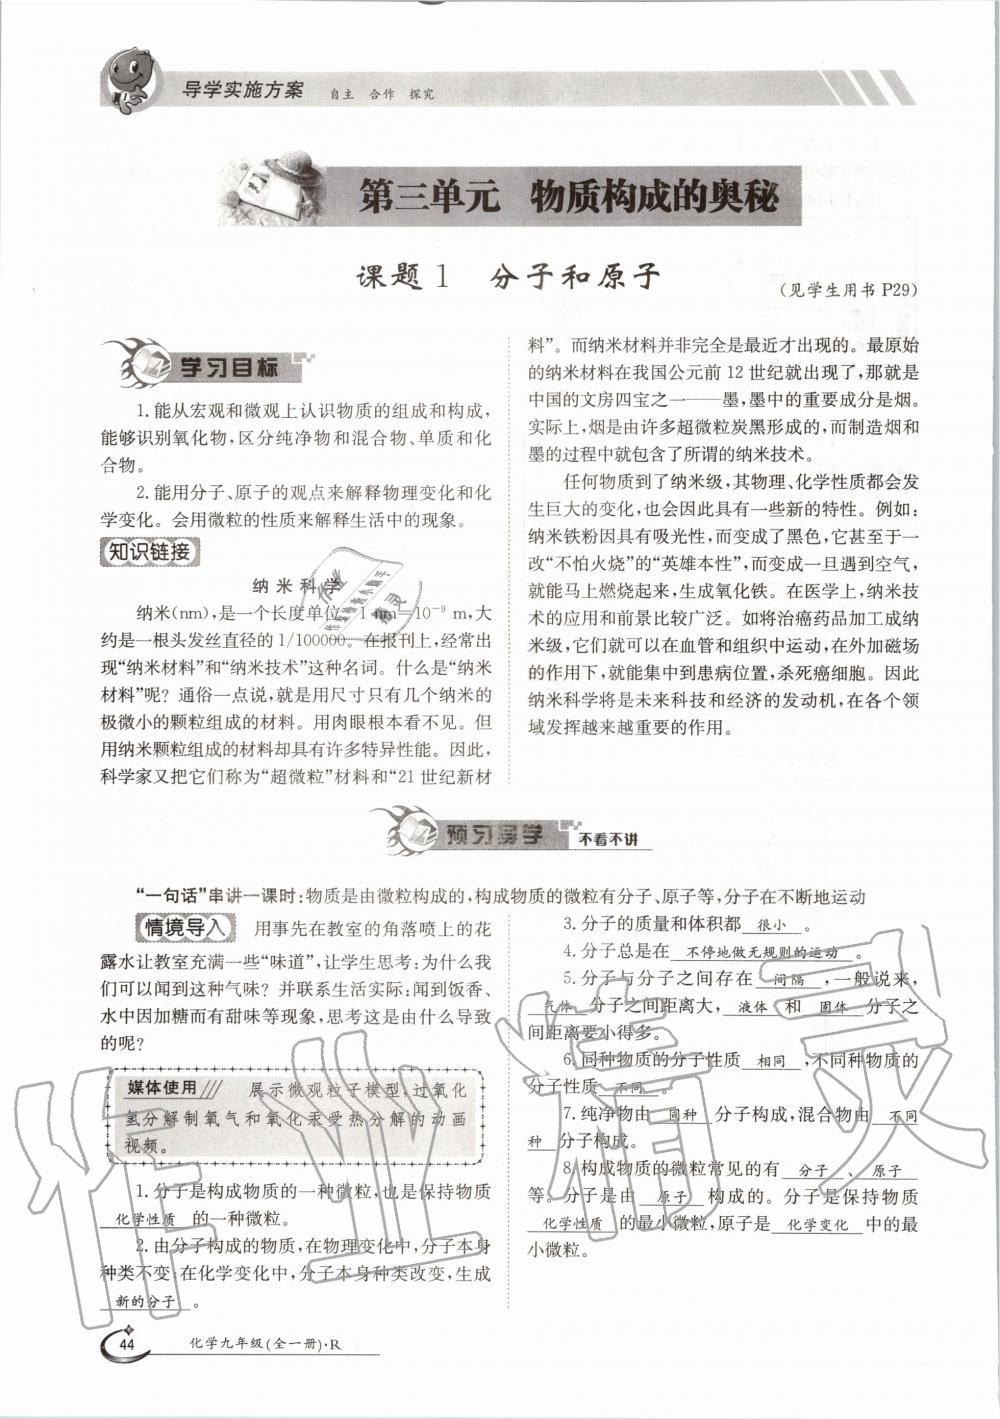 导学实施方案 自主 合作 探究
第三单元 物质构成的奥秘
课题1 分子和原子
(见学生用书 P29)
学习目标
1.能从宏观和微观上认识物质的组成和构成,
能够识别氧化物,区分纯净物和混合物、单质和化
合物。
2.能用分子、原子的观点来解释物理变化和化
学变化。会用微粒的性质来解释生活中的现象。
知识链接
纳米科学
纳米(nm),是一个长度单位,1 nm=10⁻⁹ m,大
约是一根头发丝直径的 1/100000。在报刊上,经常出
现“纳米材料”和“纳米技术”这种名词。什么是“纳米
材料”呢?通俗一点说,就是用尺寸只有几个纳米的
极微小的颗粒组成的材料。用肉眼根本看不见。但
用纳米颗粒组成的材料却具有许多特异性能。因此,
科学家又把它们称为“超微粒”材料和“21 世纪新材
料”。而纳米材料并非完全是最近才出现的。最原始
的纳米材料在我国公元前 12 世纪就出现了,那就是
中国的文房四宝之一——墨,墨中的重要成分是烟。
实际上,烟是由许多超微粒炭黑形成的,而制造烟和
墨的过程中就包含了所谓的纳米技术。
任何物质到了纳米级,其物理、化学性质都会发
生巨大的变化,也会因此具有一些新的特性。例如:
纳米铁粉因具有吸光性,而变成了黑色,它甚至于一
改“不怕火烧”的“英雄本性”,而变成一旦遇到空气,
就能马上燃烧起来,生成氧化铁。在医学上,纳米技
术的应用和前景比较广泛。如将治癌药品加工成纳
米级,它们就可以在血管和组织中运动,在外加磁场
的作用下,就能集中到患病位置,杀死癌细胞。因此
纳米科学将是未来科技和经济的发动机,在各个领
域发挥越来越重要的作用。
预习导学 不看不讲
“一句话”串讲一课时:物质是由微粒构成的,构成物质的微粒有分子、原子等,分子在不断地运动
情境导入 用事先在教室的角落喷上的花
露水让教室充满一些“味道”,让学生思考:为什么我
们可以闻到这种气味?并联系生活实际:闻到饭香、
水中因加糖而有甜味等现象,思考这是由什么导致
的呢?
媒体使用 展示微观粒子模型,过氧化
氢分解制氧气和氧化汞受热分解的动画
视频。
1.分子是构成物质的一种微粒,也是保持物质
化学性质 的一种微粒。
2.由分子构成的物质,在物理变化中,分子本身
种类不变;在化学变化中,分子本身种类改变,生成
新的分子 。
3.分子的质量和体积都 很小 。
4.分子总是在 不停地做无规则的运动 。
5.分子与分子之间存在 间隔 ,一般说来,
气体 分子之间距离大, 液体 和 固体 分子之
间距离要小得多。
6.同种物质的分子性质 相同 ,不同种物质的
分子性质 不同 。
7.纯净物由 同种 分子构成,混合物由 不同
种 分子构成。
8.构成物质的微粒常见的有 分子 、 原子
等。分子是由 原子 构成的。分子是保持物质
化学性质 的最小微粒,原子是 化学变化 中的最
小微粒。
44 化学九年级(全一册)·R
作业精灵